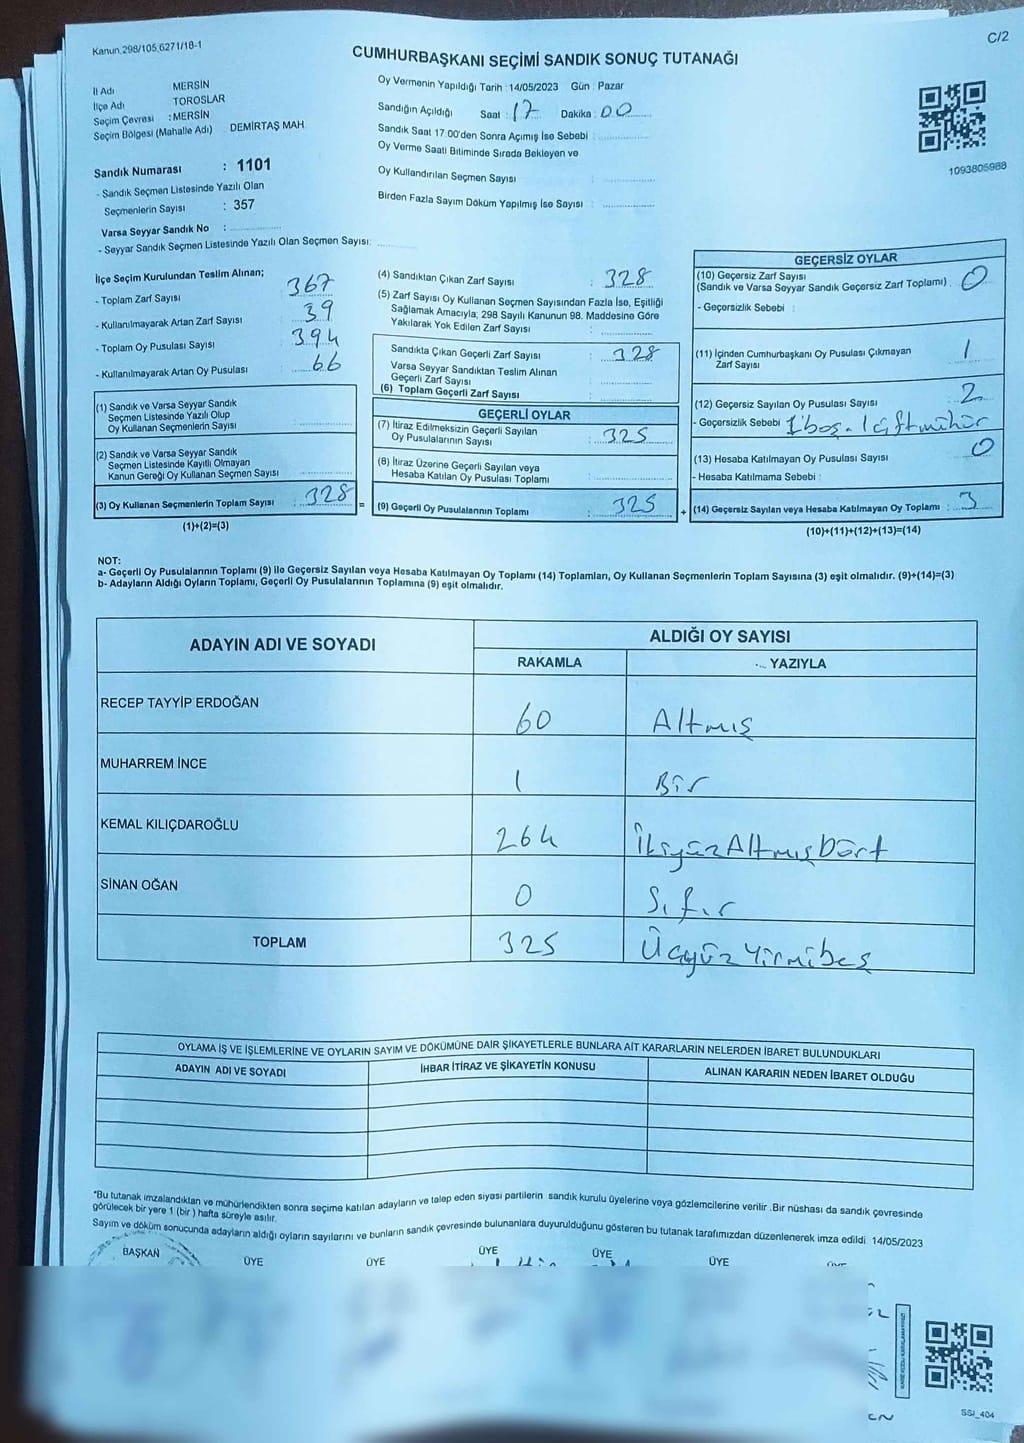 Kanun 298/105,6271/18-1
C/2
CUMHURBAŞKANI SEÇİMİ SANDIK SONUÇ TUTANAĞI
İl Adı MERSİN
İlçe Adı TOROSLAR
Seçim Çevresi : MERSİN
Seçim Bölgesi (Mahalle Adı) DEMİRTAŞ MAH
Sandık Numarası : 1101
- Sandık Seçmen Listesinde Yazılı Olan
Seçmenlerin Sayısı : 357
Varsa Seyyar Sandık No :
- Seyyar Sandık Seçmen Listesinde Yazılı Olan Seçmen Sayısı:
Oy Vermenin Yapıldığı Tarih : 14/05/2023 Gün : Pazar
Sandığın Açıldığı Saat : 17 Dakika : 00
Sandık Saat 17.00'den Sonra Açımış İse Sebebi :
Oy Verme Saati Bitiminde Sırada Bekleyen ve
Oy Kullandırılan Seçmen Sayısı :
Birden Fazla Sayım Döküm Yapılmış İse Sayısı :
1093805988
İlçe Seçim Kurulundan Teslim Alınan;
- Toplam Zarf Sayısı 367
- Kullanılmayarak Artan Zarf Sayısı 39
- Toplam Oy Pusulası Sayısı 394
- Kullanılmayarak Artan Oy Pusulası 66
(1) Sandık ve Varsa Seyyar Sandık
Seçmen Listesinde Yazılı Olup
Oy Kullanan Seçmenlerin Sayısı :
(2) Sandık ve Varsa Seyyar Sandık
Seçmen Listesinde Kayıtlı Olmayan
Kanun Gereği Oy Kullanan Seçmen Sayısı
(3) Oy Kullanan Seçmenlerin Toplam Sayısı : 328 =
(1)+(2)=(3)
(4) Sandıktan Çıkan Zarf Sayısı : 328
(5) Zarf Sayısı Oy Kullanan Seçmen Sayısından Fazla İse, Eşitliği
Sağlamak Amacıyla; 298 Sayılı Kanunun 98. Maddesine Göre
Yakılarak Yok Edilen Zarf Sayısı :
Sandıkta Çıkan Geçerli Zarf Sayısı : 328
Varsa Seyyar Sandıktan Teslim Alınan
Geçerli Zarf Sayısı :
(6) Toplam Geçerli Zarf Sayısı :
GEÇERLİ OYLAR
(7) İtiraz Edilmeksizin Geçerli Sayılan
Oy Pusulalarının Sayısı : 325
(8) İtiraz Üzerine Geçerli Sayılan veya
Hesaba Katılan Oy Pusulası Toplamı :
(9) Geçerli Oy Pusulalarının Toplamı : 325 +
GEÇERSİZ OYLAR
(10) Geçersiz Zarf Sayısı
(Sandık ve Varsa Seyyar Sandık Geçersiz Zarf Toplamı) . 0
- Geçersizlik Sebebi :
(11) İçinden Cumhurbaşkanı Oy Pusulası Çıkmayan
Zarf Sayısı 1
(12) Geçersiz Sayılan Oy Pusulası Sayısı 2
- Geçersizlik Sebebi 1 boş. 1 çift mühür
(13) Hesaba Katılmayan Oy Pusulası Sayısı 0
- Hesaba Katılmama Sebebi :
(14) Geçersiz Sayılan veya Hesaba Katılmayan Oy Toplamı : 3
(10)+(11)+(12)+(13)=(14)
NOT:
a- Geçerli Oy Pusulalarının Toplamı (9) ile Geçersiz Sayılan veya Hesaba Katılmayan Oy Toplamı (14) Toplamları, Oy Kullanan Seçmenlerin Toplam Sayısına (3) eşit olmalıdır. (9)+(14)=(3)
b- Adayların Aldığı Oyların Toplamı, Geçerli Oy Pusulalarının Toplamına (9) eşit olmalıdır.
ADAYIN ADI VE SOYADI ALDIĞI OY SAYISI
RAKAMLA YAZIYLA
RECEP TAYYİP ERDOĞAN 60 Altmış
MUHARREM İNCE 1 Bir
KEMAL KILIÇDAROĞLU 264 İkiyüzAltmışDört
SİNAN OĞAN 0 Sıfır
TOPLAM 325 Üçyüz Yirmibeş
OYLAMA İŞ VE İŞLEMLERİNE VE OYLARIN SAYIM VE DÖKÜMÜNE DAİR ŞİKAYETLERLE BUNLARA AİT KARARLARIN NELERDEN İBARET BULUNDUKLARI
ADAYIN ADI VE SOYADI İHBAR İTİRAZ VE ŞİKAYETİN KONUSU ALINAN KARARIN NEDEN İBARET OLDUĞU
*Bu tutanak imzalandıktan ve mühürlendikten sonra seçime katılan adayların ve talep eden siyasi partilerin sandık kurulu üyelerine veya gözlemcilerine verilir .Bir nüshası da sandık çevresinde
görülecek bir yere 1 (bir ) hafta süreyle asılır.
Sayım ve döküm sonucunda adayların aldığı oyların sayılarını ve bunların sandık çevresinde bulunanlara duyurulduğunu gösteren bu tutanak tarafımızdan düzenlenerek imza edildi 14/05/2023
BAŞKAN ÜYE ÜYE ÜYE ÜYE ÜYE
SSI_404